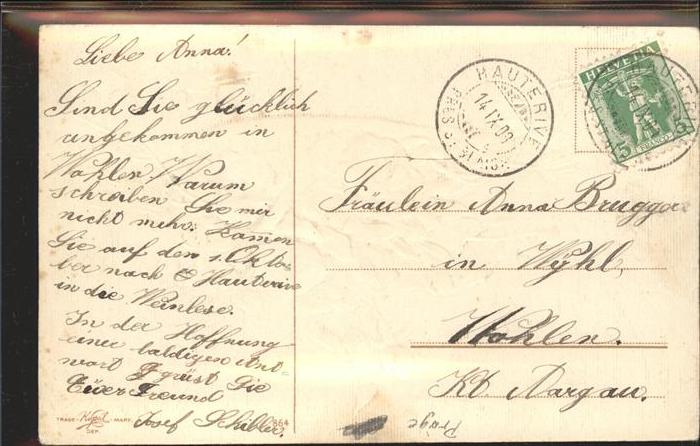 Liebe Anna!
Sind Sie glücklich
angekommen in
Wohlen. Warum
schreiben Sie mir
nicht mehr. Kommen
Sie auf den 1. Okto-
ber nach Hauterive
in die Weinlese.
In der Hoffnung
einer baldigen Ant-
wort grüst Sie
Euer Freund
Josef Schibler.
TRADE - MARK
SER. 864
HAUTERIVE
14 IX 09
HELVETIA
5 5
Fräulein Anna Brugger
in Wyhl,
Wohlen.
Kt. Aargau.